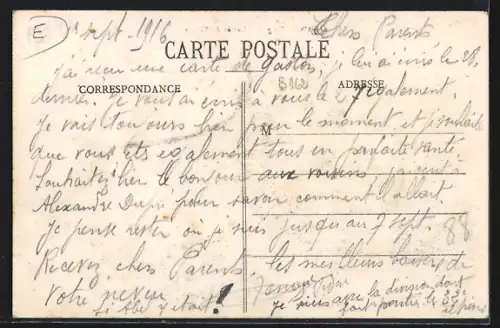 E
1 sept 1916
Chers Parents
CARTE POSTALE
j'ai reçu une carte de Gaston, je lui ai écris le 28,
CORRESPONDANCE
B162
ADRESSE
dernier. Je vous ai écris a vous le 27 également.
Je vais toujours bien pour le moment, et je souhaite
M
que vous êtes également tous en parfaite santé
Souhaitez bien le bonjour aux voisins,
Alexandre pour savoir comment il allait.
Je pense rester où je suis jusqu'au 7 sept.
88
Recevez, chers Parents les meilleurs baisers de
votre
je suis avec la division dont
était!
font partie le